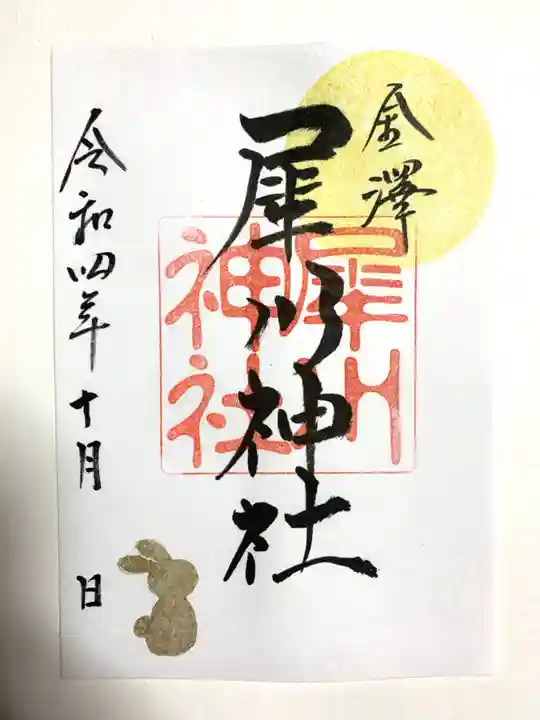 金澤
犀川神社
犀川
神社
令和四年十月　日